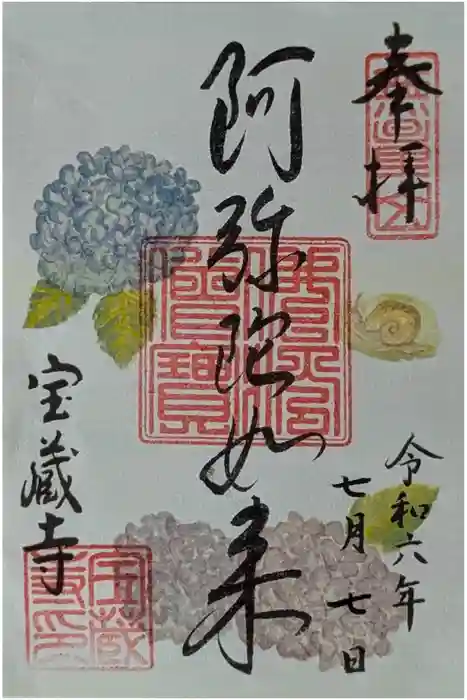 奉拝
令和六年
七月七日
阿弥陀如来
佛法僧寶
宝蔵寺